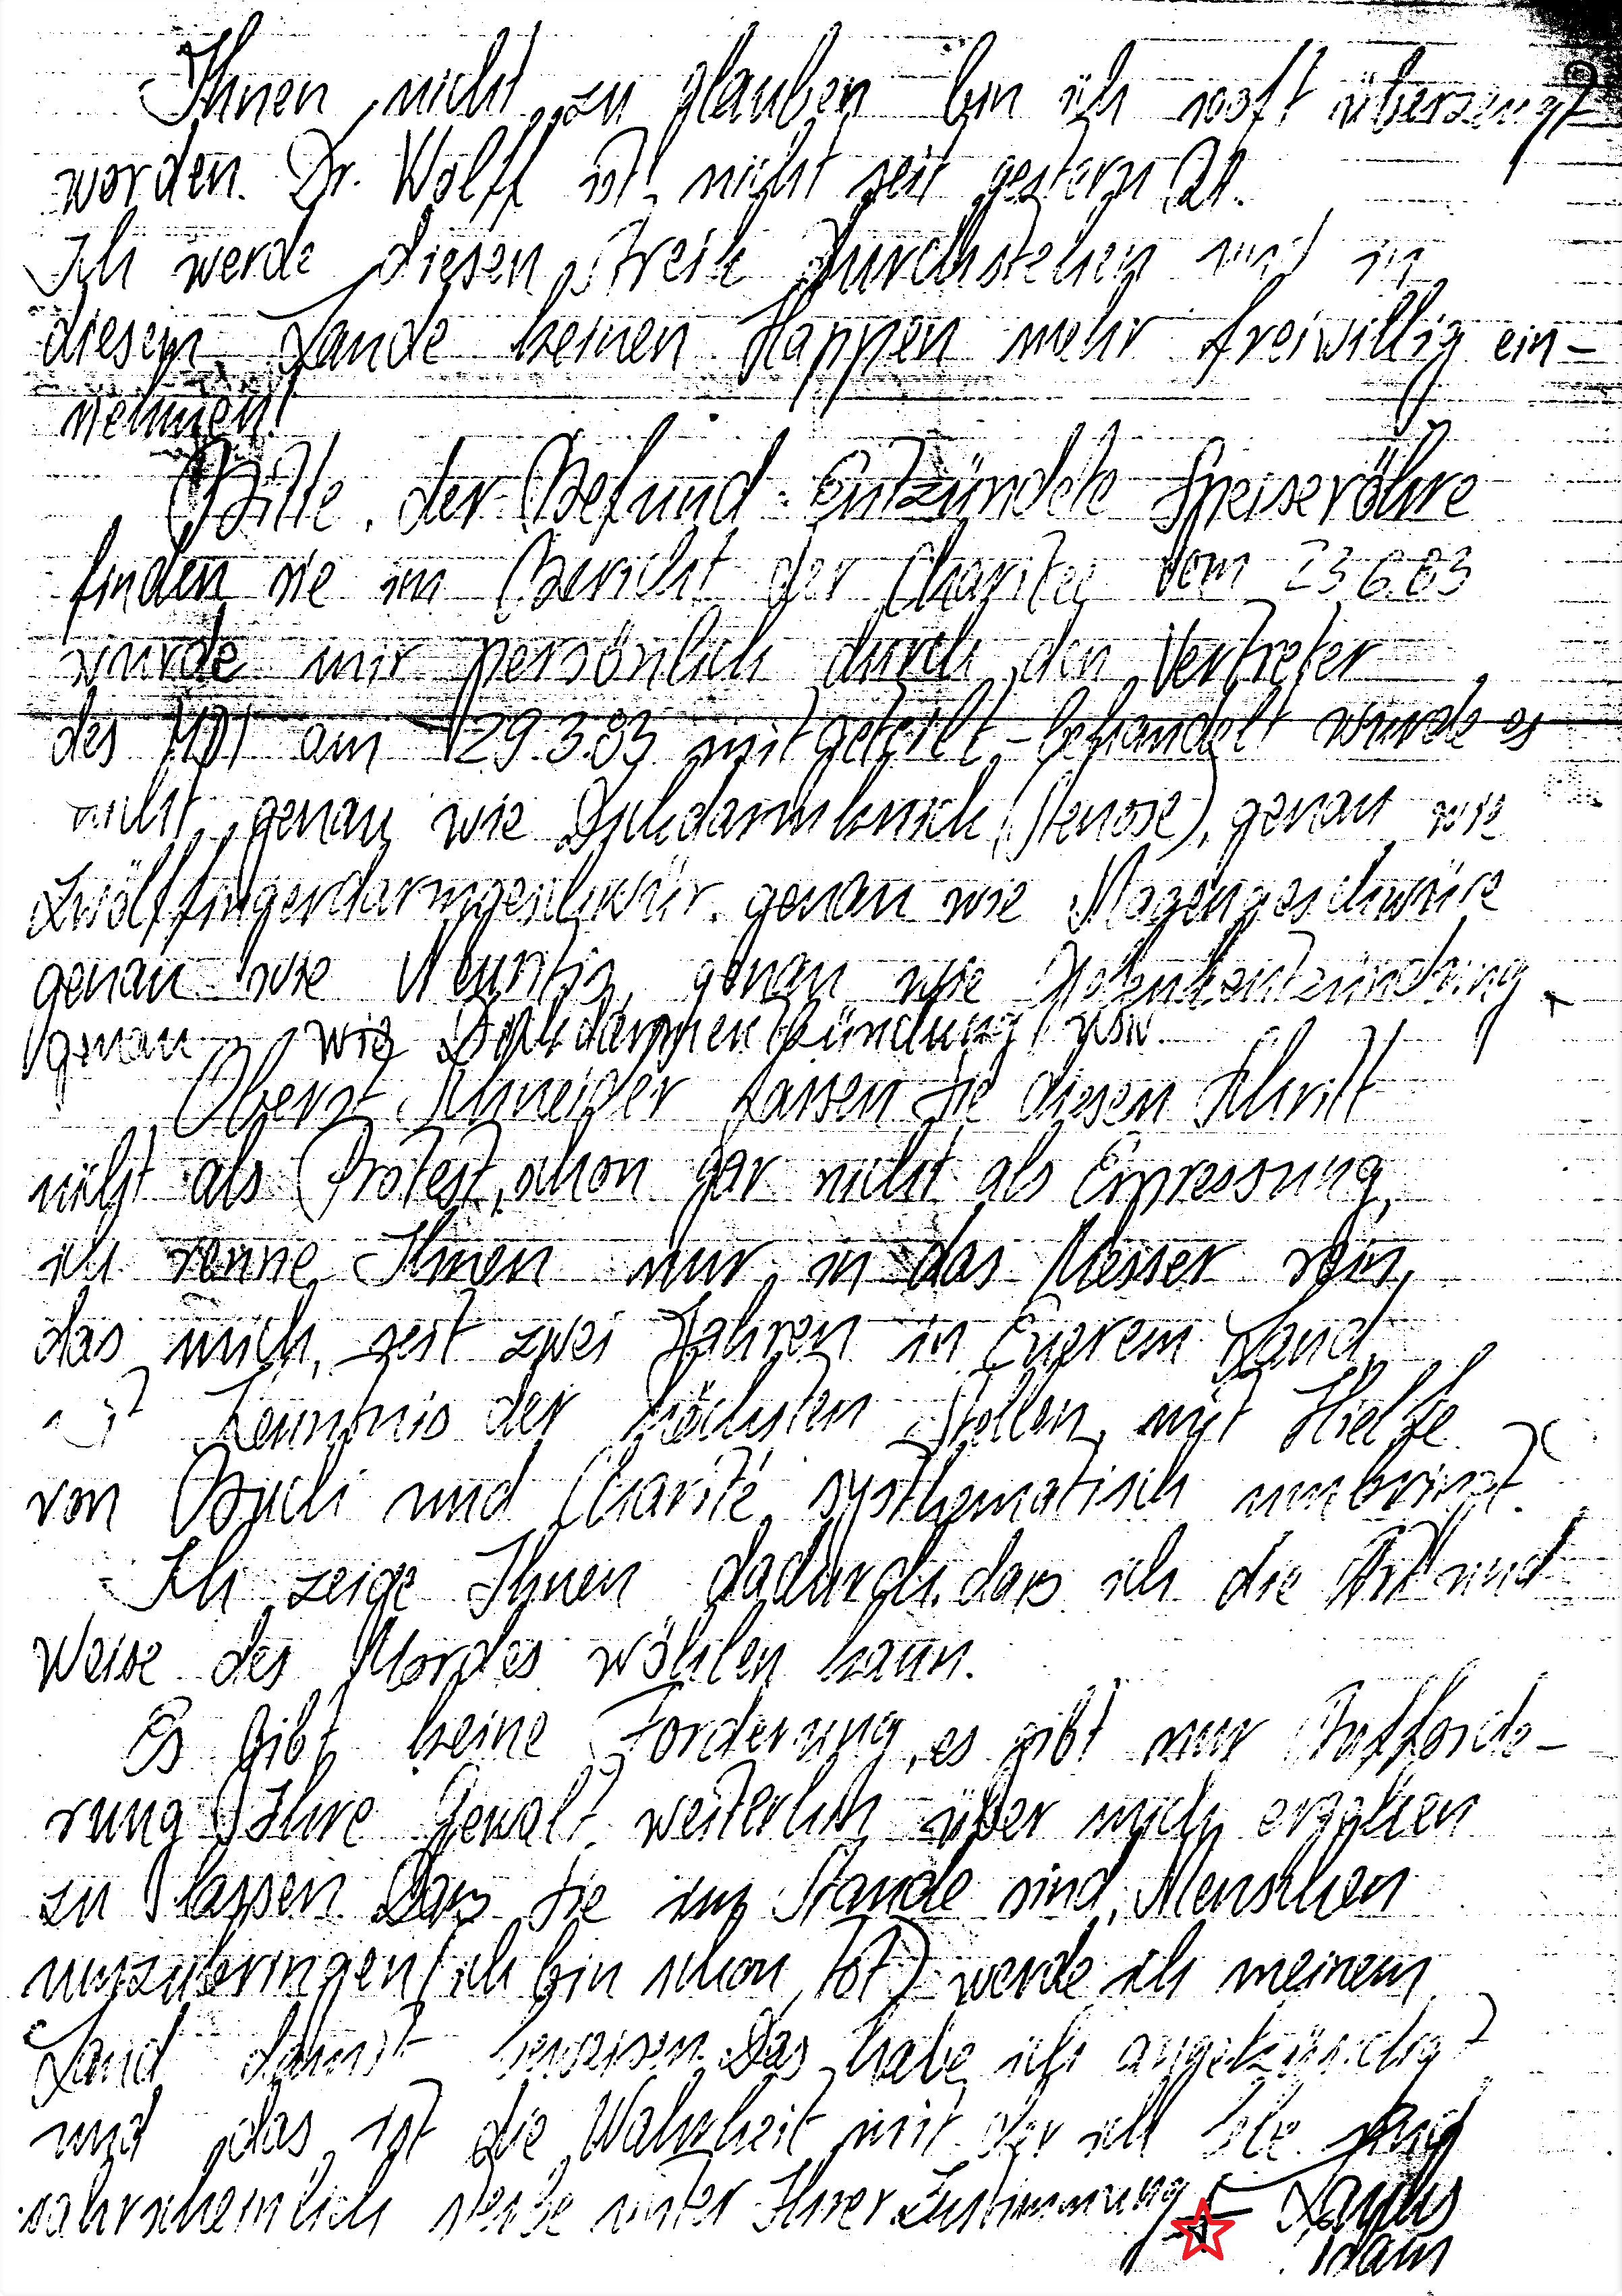 Ihnen nicht zu glauben bin ich sooft überzeugt
worden. Dr. Wolff ist nicht seit gestern da.
Ich werde diesen Streik durchstehen und in
diesem Lande keinen Happen mehr freiwillig ein-
nehmen!
Bitte, der Befund: Entzündete Speiseröhre
finden sie im Bericht der Charitee vom 23.6.83
wurde mir persönlich durch den Vertreter
des am 29.3.83 mitgeteilt - behandelt wurde es
nicht, genau wie Dickdarmknick (Stenose), genau wie
Zwölffingerdarmgeschwür, genau wie Magengeschwüre
genau wie genau wie
genau wie Dickdarmentzündung usw.
Oberst Schneider fassen Sie diesen Schritt
nicht als Protest, schon gar nicht als Erpressung,
ich renne Ihnen nur in das Messer rein,
das mich, seit zwei Jahren in Euerem Land
mit Kenntnis der höchsten Stellen, mit Hielfe
von Buch und Charité systhematisch umbringt.
Ich zeige Ihnen dadurch, dass ich die Art und
Weise des Mordes wählen kann.
Es gibt keine Forderung, es gibt nur Aufforde-
rung Ihre Gewalt weiterhin über mich ergehen
zu lassen. Dass Sie im Stande sind, Menschen
umzubringen (ich bin schon tot) werde ich meinem
Land damit beweisen. Das habe ich angekündigt
und das ist die Wahrheit mit der ich lebe und
wahrscheinlich sterbe unter Ihrer Zustimmung